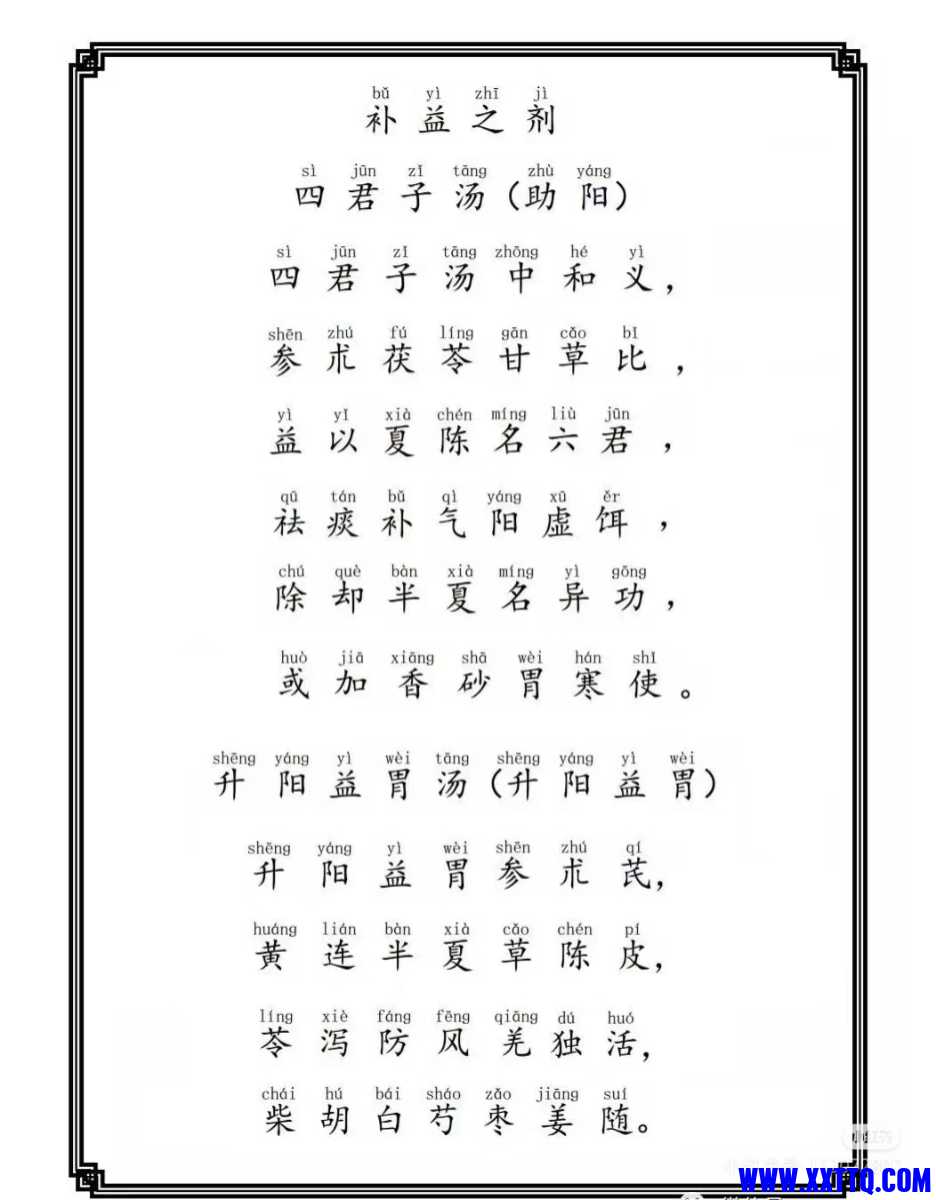 bǔ yì zhī jì
补益之剂
sì jūn zǐ tāng zhù yáng
四君子汤(助阳)
sì jūn zǐ tāng zhōng hé yì
四君子汤中和义，
shēn zhú fú líng gān cǎo bǐ
参术茯苓甘草比，
yì yǐ xià chén míng liù jūn
益以夏陈名六君，
qū tán bǔ qì yáng xū ěr
祛痰补气阳虚饵，
chú què bàn xià míng yì gōng
除却半夏名异功，
huò jiā xiāng shā wèi hán shǐ
或加香砂胃寒使。
shēng yáng yì wèi tāng shēng yáng yì wèi
升阳益胃汤(升阳益胃)
shēng yáng yì wèi shēn zhú qí
升阳益胃参术芪，
huáng lián bàn xià cǎo chén pí
黄连半夏草陈皮，
líng xiè fáng fēng qiāng dú huó
苓泻防风羌独活，
chái hú bái sháo zǎo jiāng suí
柴胡白芍枣姜随。
小红书
WWW.XXTTQ.COM